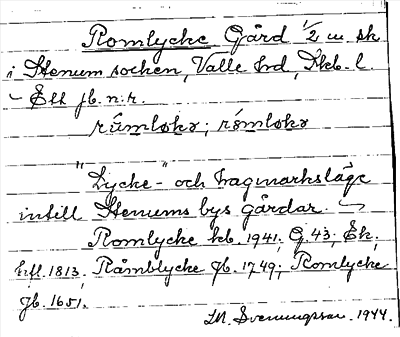 Romlycke Gård 1/2 m sk
i Stenum socken, Valle hd, Skb. l.
~ Ett jb. n:r.
rúmløkə; rǿmløkə
"Lycke-" och hagmarksläge
intill Stenums bys gårdar.
Romlycke kb. 1941. G. 43, Ek.
hfl. 1813. Råmblycke jb. 1749, Romlycke
jb. 1651.
M. Svenungsson. 1944.